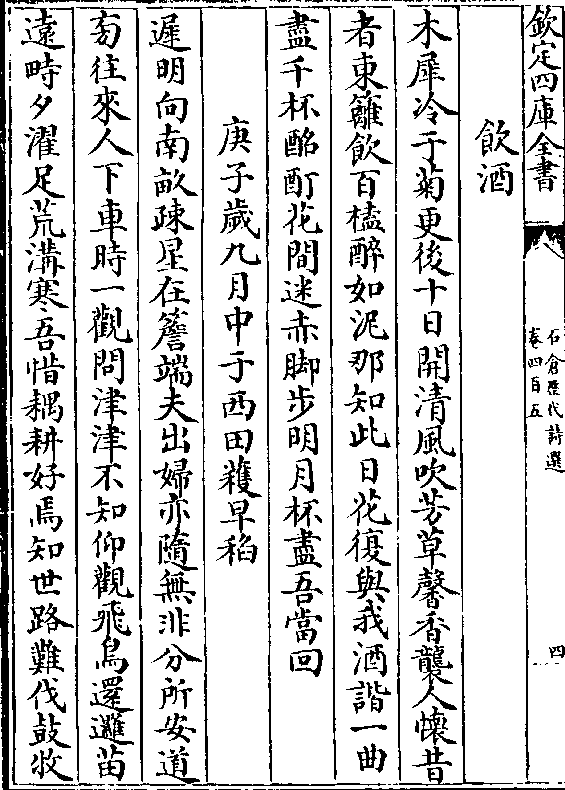 欽定四庫全書
石倉歷代詩選
卷四百五
四
飲酒
木犀冷于菊更後十日開清風吹芳草馨香襲人懷昔
者東籬飲百榼醉如泥那知此日花復與我酒諧一曲
盡千杯酩酊花間迷赤脚步明月杯盡吾當回
庚子歲九月中于西田穫早稻
遲明向南畝疎星在簷端夫出婦亦隨無非分所安道
旁往來人下車時一觀問津津不知仰觀飛鳥還邐苗
遠畤夕濯足荒溝寒吾惜耦耕好焉知世路難伐鼓收